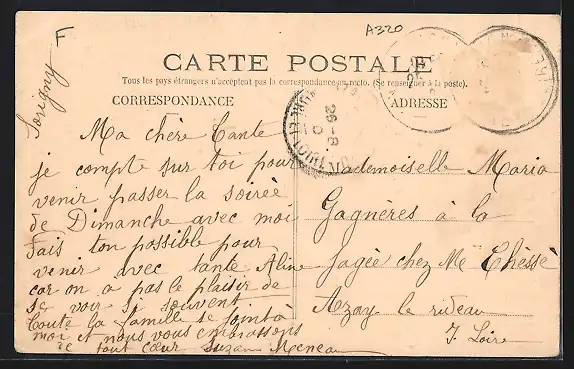 F
A320
Sorigny
CARTE POSTALE
Tous les pays étrangers n'acceptent pas la correspondance au recto. (Se renseigner à la poste).
CORRESPONDANCE
ADRESSE
26-8
Ma chère tante
je compte sur toi pour
venir passer la soirée
de Dimanche avec moi
Fais ton possible pour
venir avec tante Aline
car on a pas le plaisir de
se voir si souvent
toute la famille se joint à
moi et nous vous embrassons
de tout cœur Suzan
Mademoiselle Maria
Gagnères à la
Jagée chez Me Chéssé
Azay le rideau
I. Loire